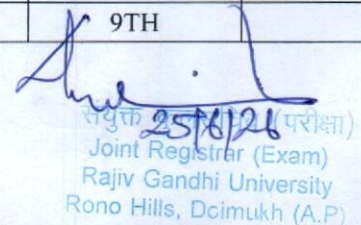 9TH
25/6/26
संयुक्त (परीक्षा)
Joint Registrar (Exam)
Rajiv Gandhi University
Rono Hills, Doimukh (A.P)